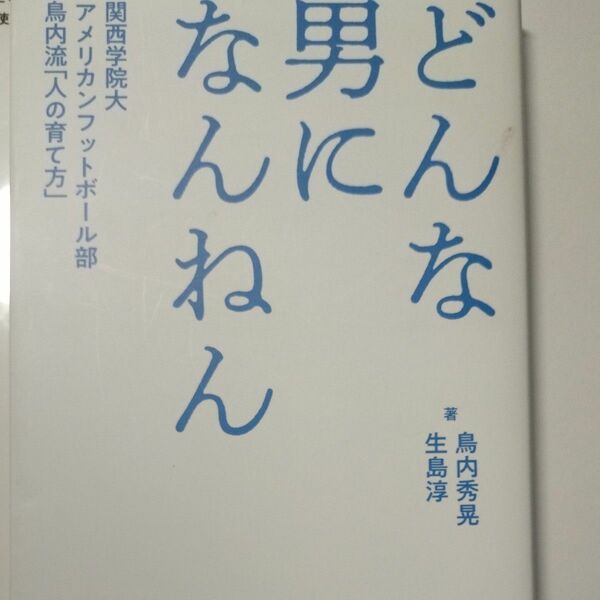 どんな
男に
なんねん
関西学院大
アメリカンフットボール部
鳥内流「人の育て方」
著
鳥内秀晃
生島淳
使